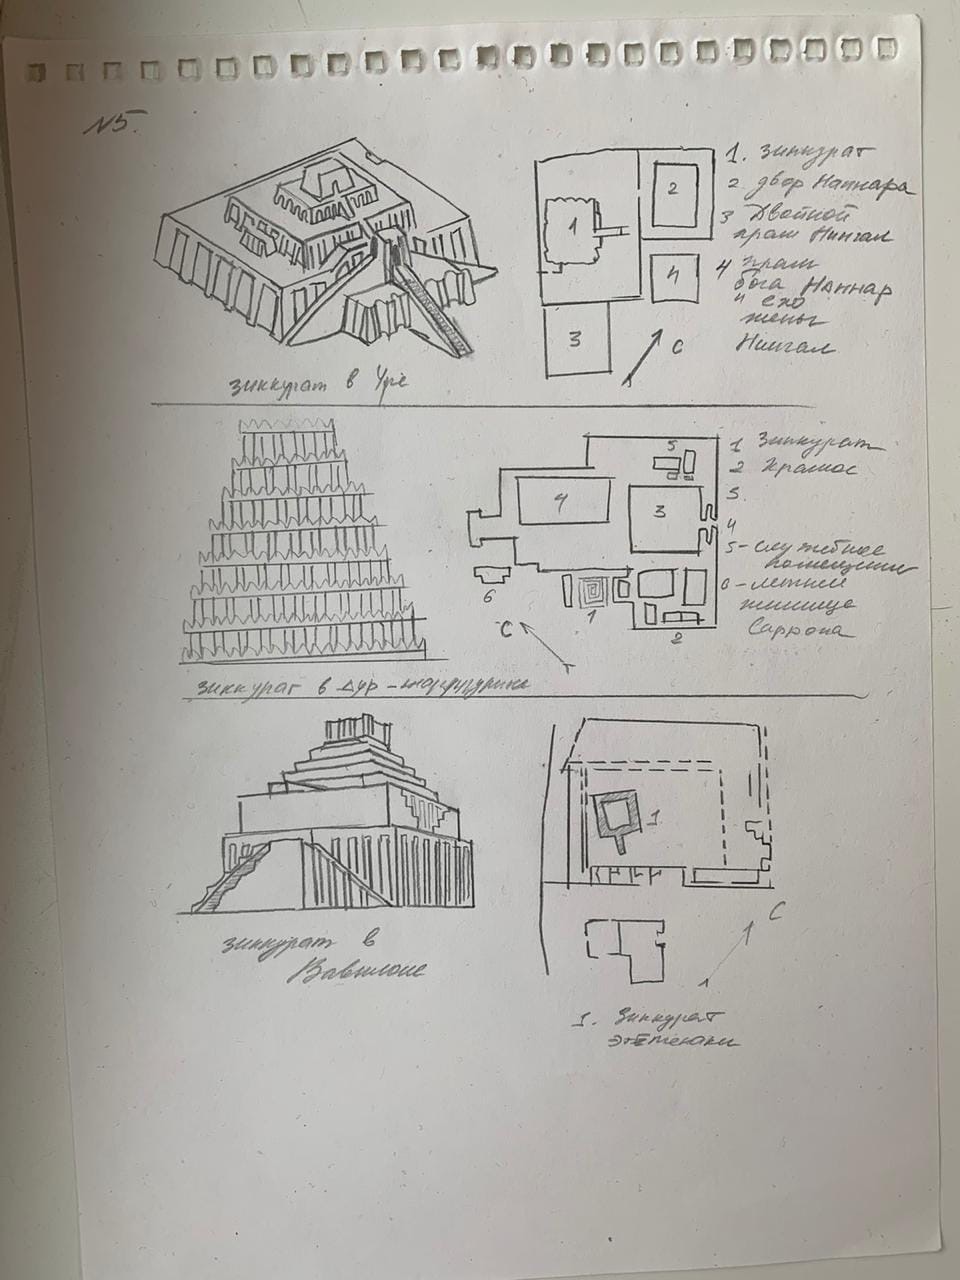 N5.
1. зиккурат
2. двор Наннара
3 Двойной
храм Нингал
4 храм
бога Наннар
и его
жены
Нингал
1
2
3
4
С
зиккурат в Уре
1 Зиккурат
2 Храмы
3.
4
5-служебное
помещении
6-летнее
жилище
Саргона
5
4
3
6
1
2
С
зиккурат в Дур-Шаррукине
1
С
зиккурат в
Вавилоне
1. Зиккурат
Этеменанки